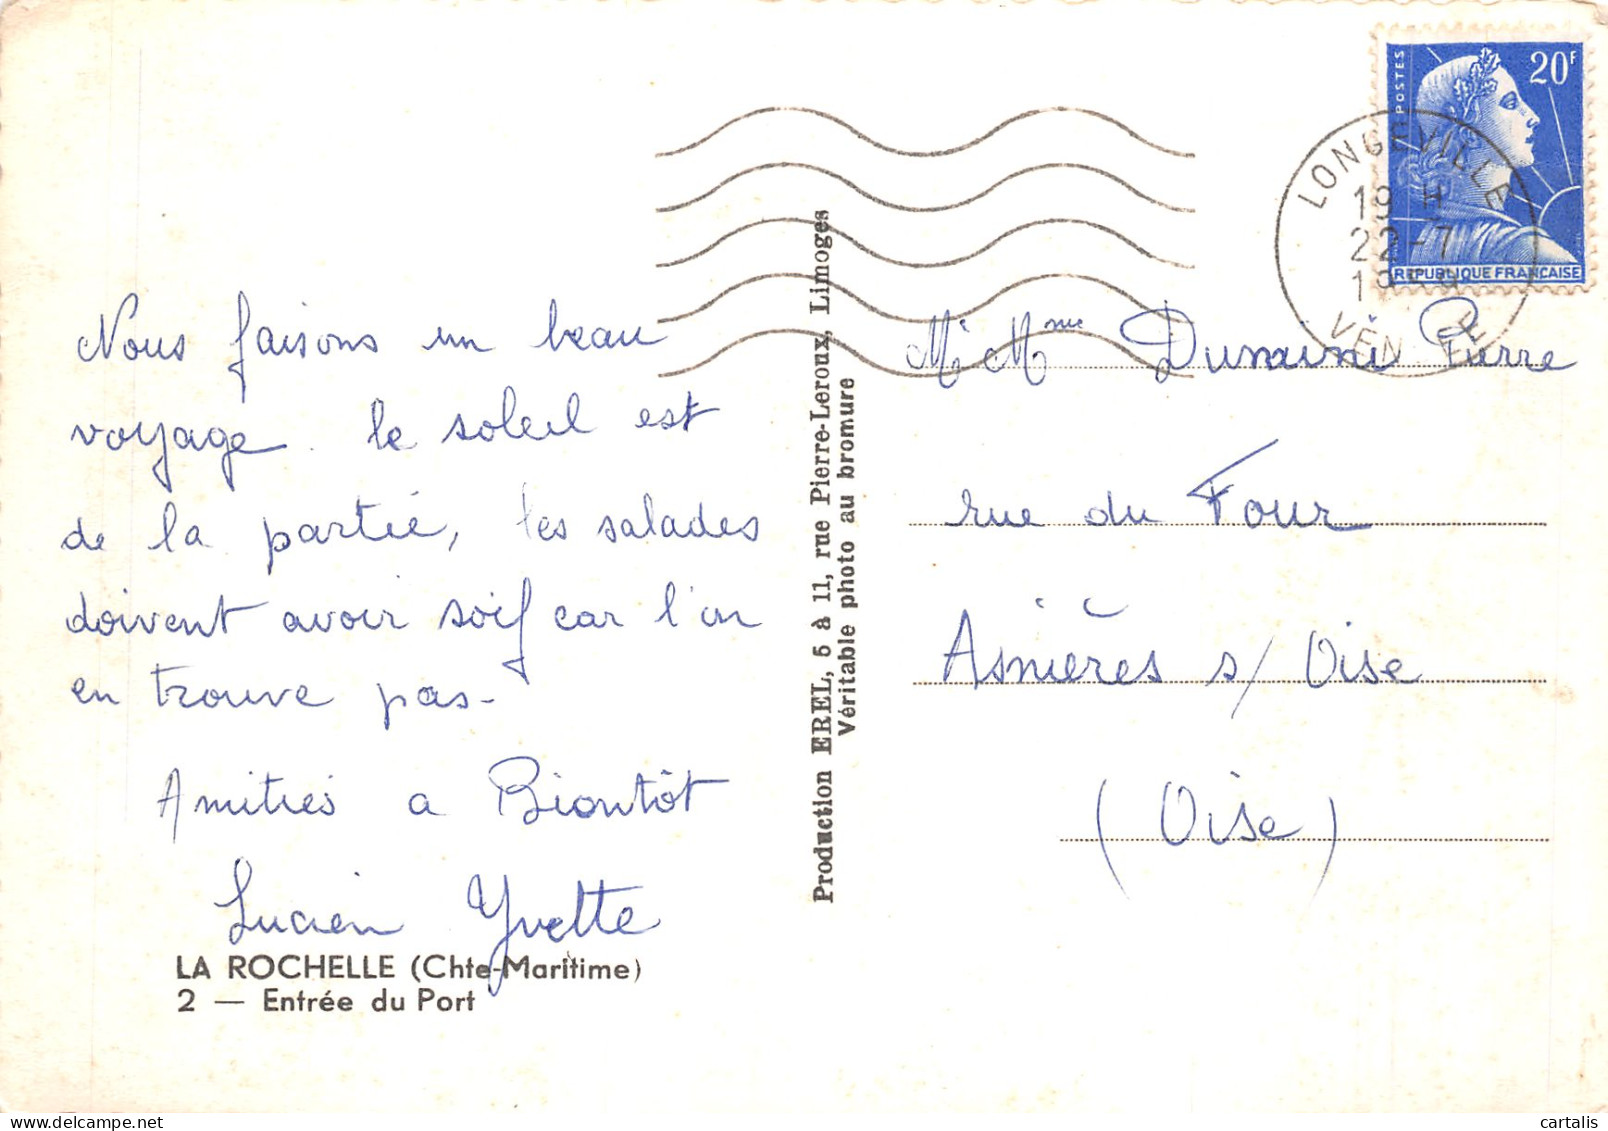 Nous faisons un beau
voyage. le soleil est
de la partie, les salades
doivent avoir soif car l'on
en trouve pas-
Amitiés a Biontôt
Lucien Yvette
LA ROCHELLE (Chte-Maritime)
2 — Entrée du Port
Production EREL, 5 à 11, rue Pierre-Leroux, Limoges
Véritable photo au bromure
POSTES
20F
REPUBLIQUE FRANÇAISE
LONGEVILLE
19 H
22-7
VEN
Mr Mme Pierre
rue du Four
Asnières s/ Oise
(Oise)
cartalis